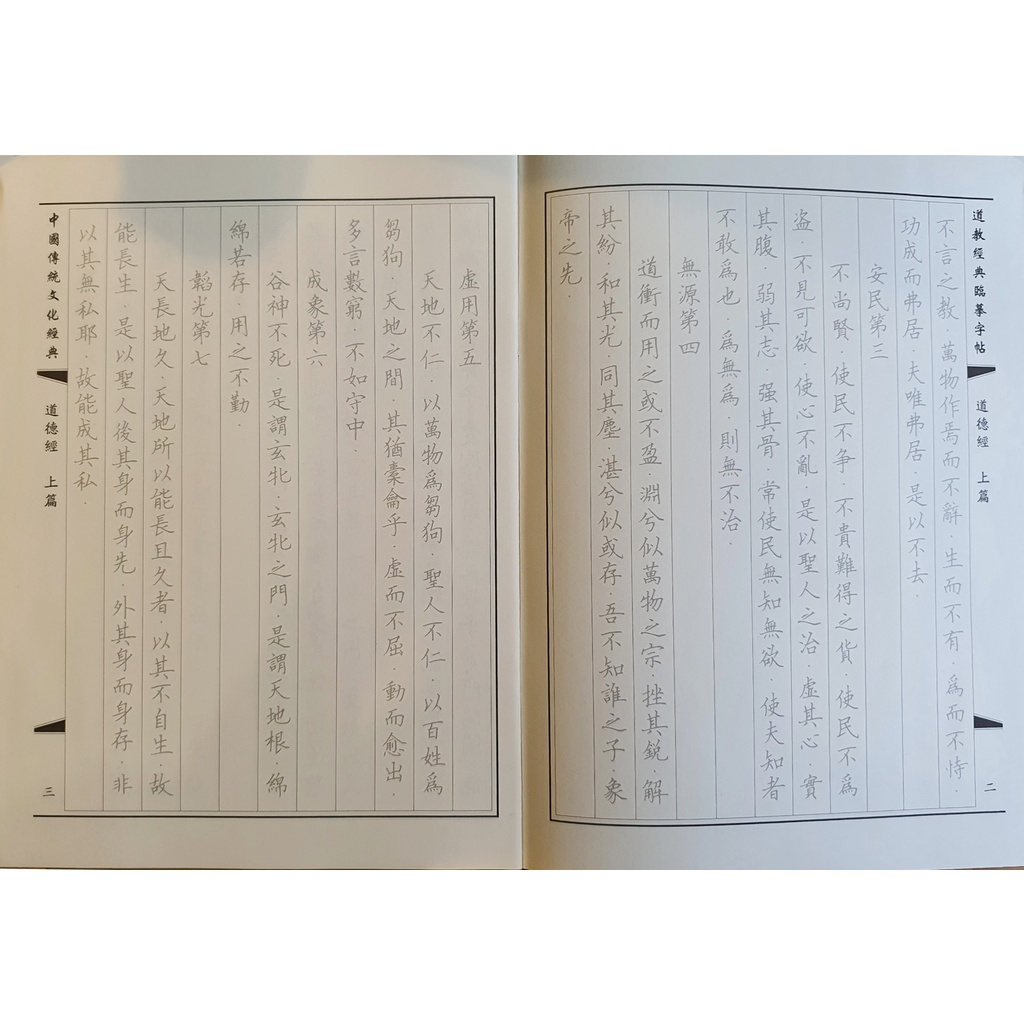 道教經典臨摹字帖
道德經 上篇
二
不言之教．萬物作焉而不辭．生而不有．為而不恃．
功成而弗居．夫唯弗居．是以不去．
安民第三
不尚賢．使民不争．不貴難得之貨．使民不為
盜．不見可欲．使心不亂．是以聖人之治．虛其心．實
其腹．弱其志．强其骨．常使民無知無欲．使夫知者
不敢為也．為無為．則無不治．
無源第四
道衝而用之或不盈．淵兮似萬物之宗．挫其銳．解
其紛．和其光．同其塵．湛兮似或存．吾不知誰之子．象
帝之先．
虛用第五
天地不仁．以萬物為芻狗．聖人不仁．以百姓為
芻狗．天地之間．其猶橐龠乎．虛而不屈．動而愈出．
多言數窮．不如守中．
成象第六
谷神不死．是謂玄牝．玄牝之門．是謂天地根．綿
綿若存．用之不勤．
韜光第七
天長地久．天地所以能長且久者．以其不自生．故
能長生．是以聖人後其身而身先．外其身而身存．非
以其無私耶．故能成其私．
中國傳統文化經典
道德經 上篇
三